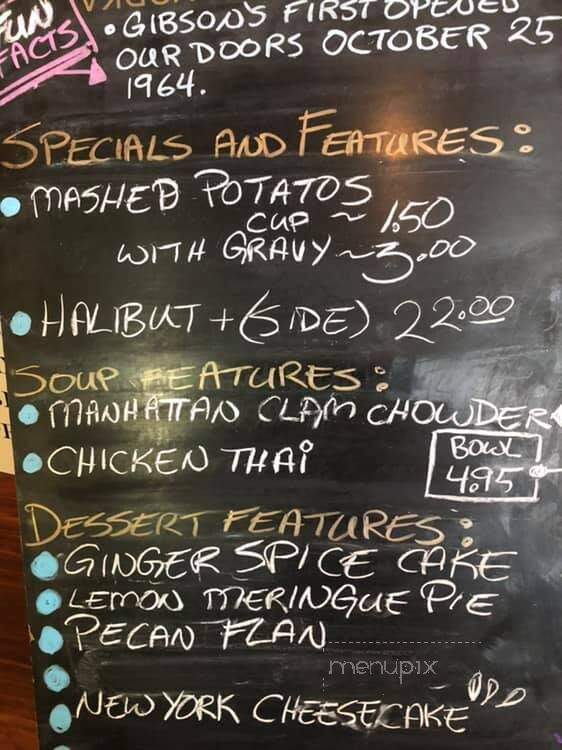 FUN
FACTS
• GIBSON'S FIRST OPENED
OUR DOORS OCTOBER 25
1964.
SPECIALS AND FEATURES:
• MASHED POTATOS
CUP ~ 1.50
WITH GRAVY ~ 3.00
• HALIBUT + (SIDE) 22.00
SOUP FEATURES:
• MANHATTAN CLAM CHOWDER
• CHICKEN THAI
BOWL
4.95
DESSERT FEATURES:
• GINGER SPICE CAKE
• LEMON MERINGUE PIE
• PECAN FLAN
menupix
• NEW YORK CHEESECAKE